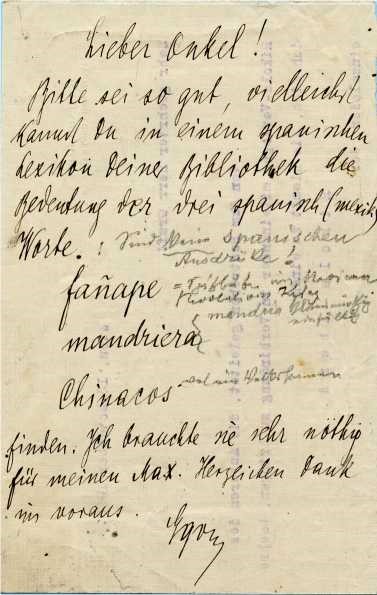 Lieber Onkel!
Bitte sei so gut, vielleicht
kannst Du in einem spanischen
Lexikon Deiner Bibliothek die
Bedeutung der drei spanisch (mexik)
Worte. : Sind keine spanischen
Ausdrüke!
fañape =
Revolution
mandriera mandria
Chinacos
finden. Ich brauchte sie sehr nöthig
für meinen Max. Herzlichen Dank
im voraus.
Egon